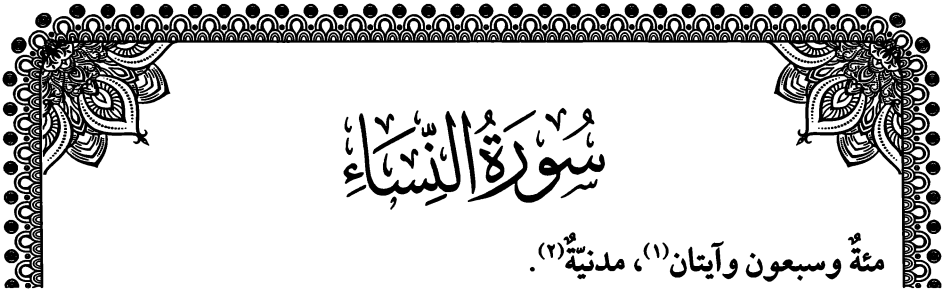 سُورَةُ النِّسَاءِ
مئةٌ وسبعون وآيتان(١)، مدنيّةٌ(٢).